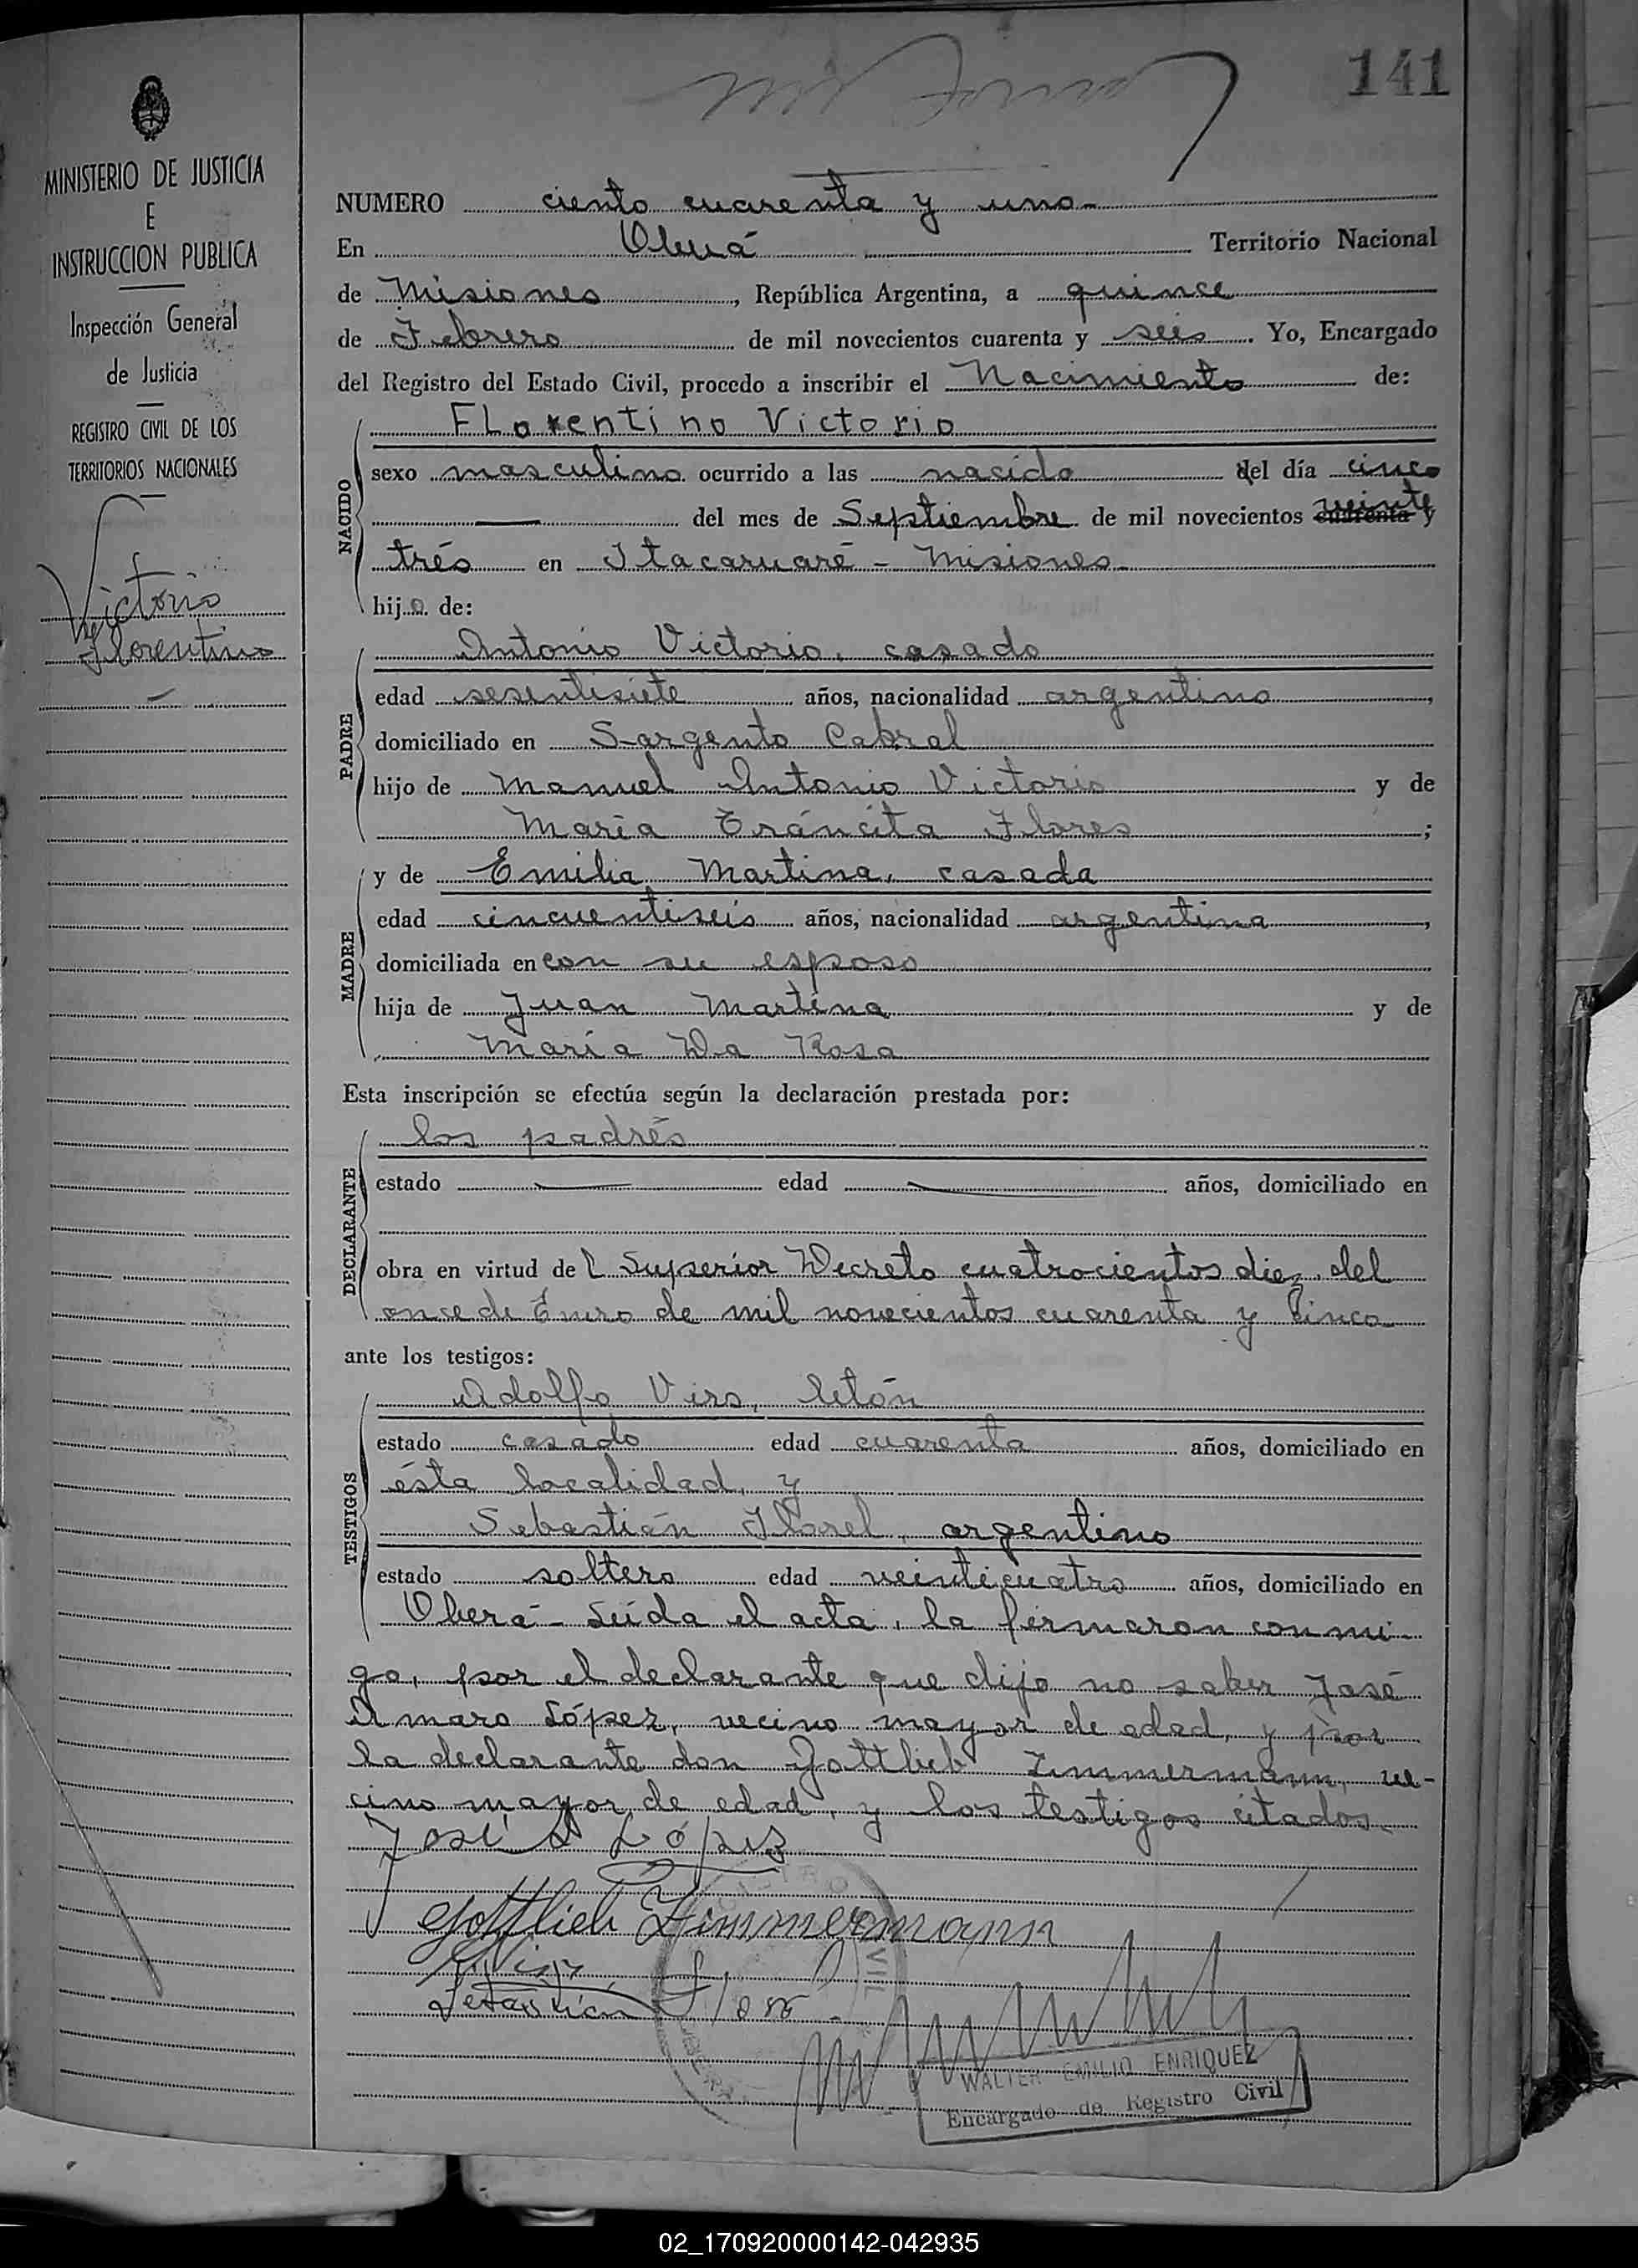 141
MINISTERIO DE JUSTICIA
E
INSTRUCCION PUBLICA
Inspección General
de Justicia
REGISTRO CIVIL DE LOS
TERRITORIOS NACIONALES
Victorio
Florentino
NUMERO ciento cuarenta y uno
En Oberá Territorio Nacional
de Misiones, República Argentina, a quince
de Febrero de mil novecientos cuarenta y seis. Yo, Encargado
del Registro del Estado Civil, procedo a inscribir el Nacimiento de:
NACIDO
Florentino Victorio
sexo masculino ocurrido a las nacido del día cinco
— del mes de Septiembre de mil novecientos cuarenta veinte y
trés en Itacaruaré - Misiones
hijo de:
PADRE
Antonio Victorio, casado
edad sesentisiete años, nacionalidad argentino,
domiciliado en Sargento Cabral
hijo de Manuel Antonio Victorio y de
María Fráncita Flores;
MADRE
y de Emilia Martina, casada
edad cincuentiseis años, nacionalidad argentina,
domiciliada en con su esposo
hija de Juan Martina y de
María Da Rosa
Esta inscripción se efectúa según la declaración prestada por:
DECLARANTE
los padrés
estado — edad — años, domiciliado en
obra en virtud del Superior Decreto cuatrocientos diez del
once de Enero de mil novecientos cuarenta y cinco
ante los testigos:
TESTIGOS
Adolfo Virs, letón
estado casado edad cuarenta años, domiciliado en
ésta localidad, y
Sebastián Florel, argentino
estado soltero edad veinticuatro años, domiciliado en
Oberá - Leída el acta, la firmaron conmi-
go, por el declarante que dijo no saber José
Amaro López, vecino mayor de edad, y por
la declarante don Gottlieb Zimmermann, ve-
cino mayor de edad, y los testigos citados
José A López
Gottlieb Zimmermann
Sebastián
WALTER EMILIO ENRIQUEZ
Encargado de Registro Civil
02_170920000142-042935